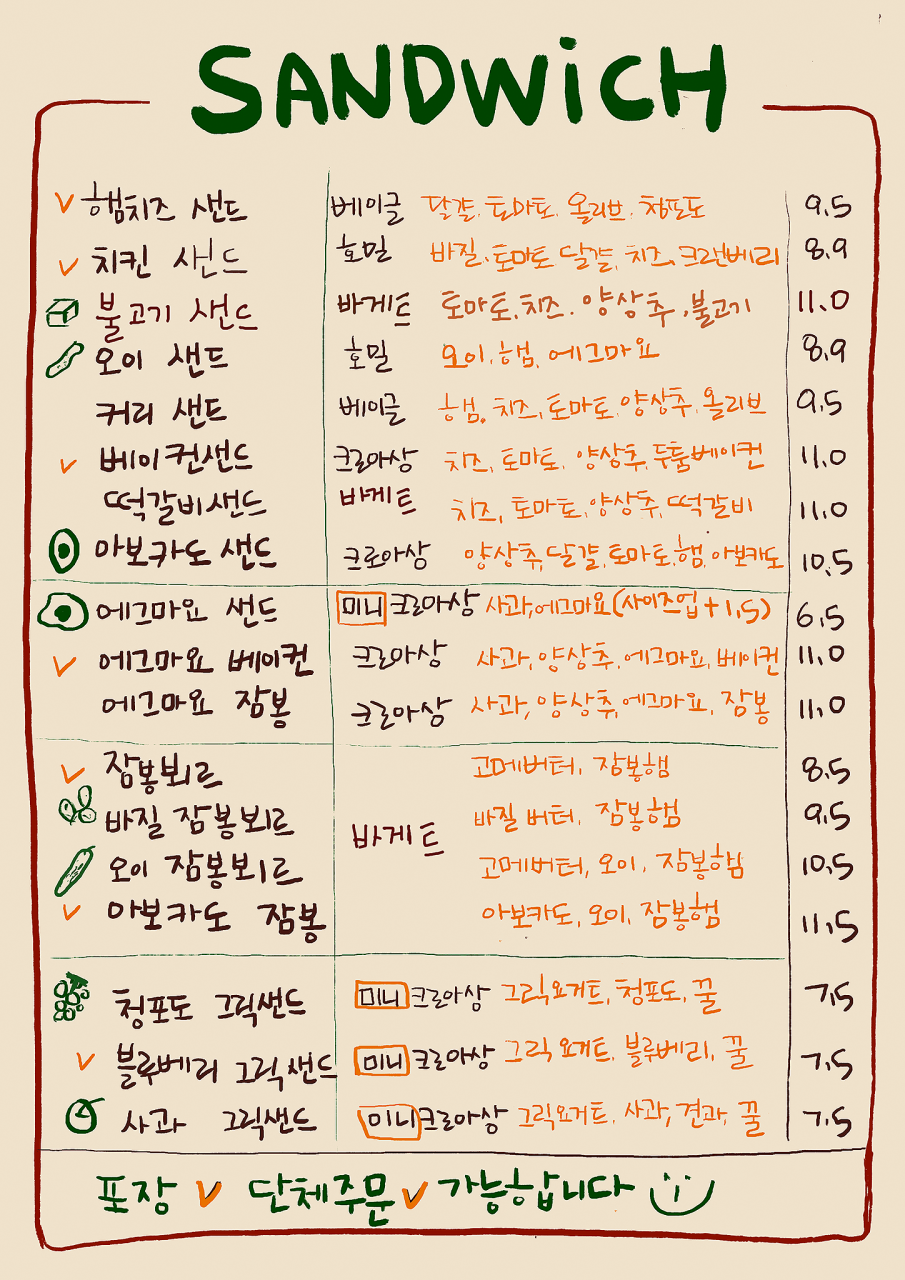 SANDWiCH
햄치즈 샌드 베이글 달걀, 토마토, 올리브, 청포도 9.5
치킨 샌드 호밀 바질, 토마토 달걀, 치즈, 크랜베리 8.9
불고기 샌드 바게트 토마토, 치즈, 양상추, 불고기 11.0
오이 샌드 호밀 오이, 햄, 에그마요 8.9
커리 샌드 베이글 햄, 치즈, 토마토, 양상추, 올리브 9.5
베이컨샌드 크로아상 치즈, 토마토, 양상추, 두툼베이컨 11.0
떡갈비샌드 바게트 치즈, 토마토, 양상추, 떡갈비 11.0
아보카도 샌드 크로아상 양상추, 달걀, 토마토, 햄, 아보카도 10.5
에그마요 샌드 미니 크로아상 사과, 에그마요(사이즈업 + 1.5) 6.5
에그마요 베이컨 크로아상 사과, 양상추, 에그마요, 베이컨 11.0
에그마요 잠봉 크로아상 사과, 양상추, 에그마요, 잠봉 11.0
잠봉뵈르 고메버터, 잠봉햄 8.5
바질 잠봉뵈르 바질 버터, 잠봉햄 9.5
바게트
오이 잠봉뵈르 고메버터, 오이, 잠봉햄 10.5
아보카도 잠봉 아보카도, 오이, 잠봉햄 11.5
청포도 그릭샌드 미니 크로아상 그릭요거트, 청포도, 꿀 7.5
블루베리 그릭샌드 미니 크로아상 그릭요거트, 블루베리, 꿀 7.5
사과 그릭샌드 미니 크로아상 그릭요거트, 사과, 견과, 꿀 7.5
포장 단체주문 가능합니다